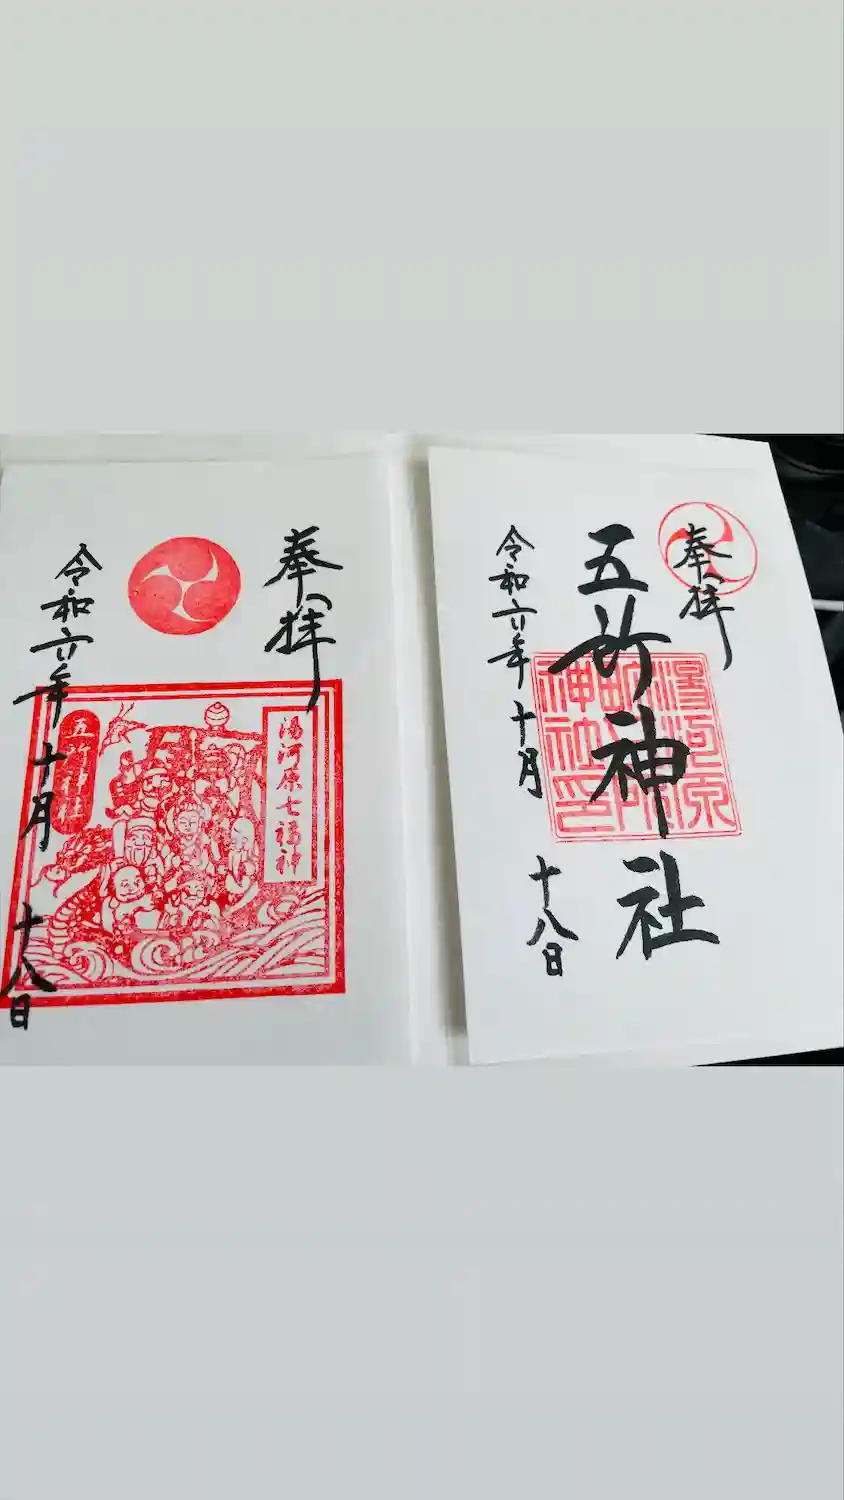 奉拝
五所神社
湯河原
五所
神社印
令和六年十月十八日
奉拝
湯河原七福神
五所神社
令和六年十月十八日